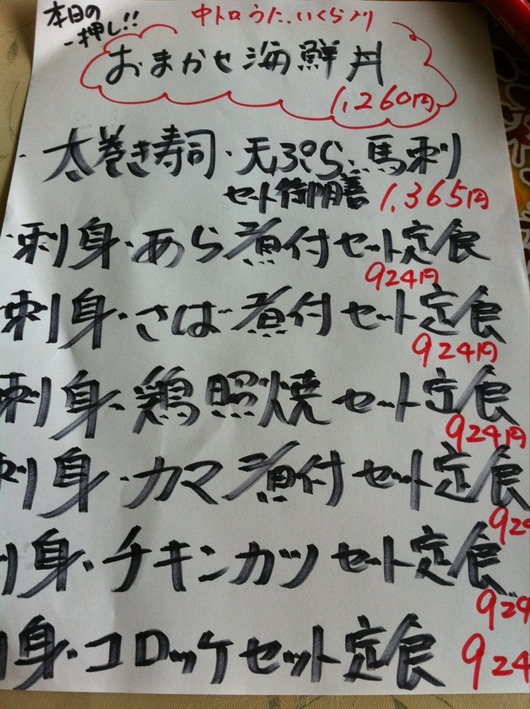 本日の
一押し!!
中トロ うに、いくら入り
おまかせ海鮮丼
1,260円
太巻き寿司・天ぷら・馬刺
セット 御膳 1,365円
・刺身・あら煮付セット定食
924円
刺身・さば煮付セット定食
924円
刺身・鶏照焼セット定食
924円
刺身・カマ煮付セット定食
92
刺身・チキンカツセット定食
924
身・コロッケセット定食 924